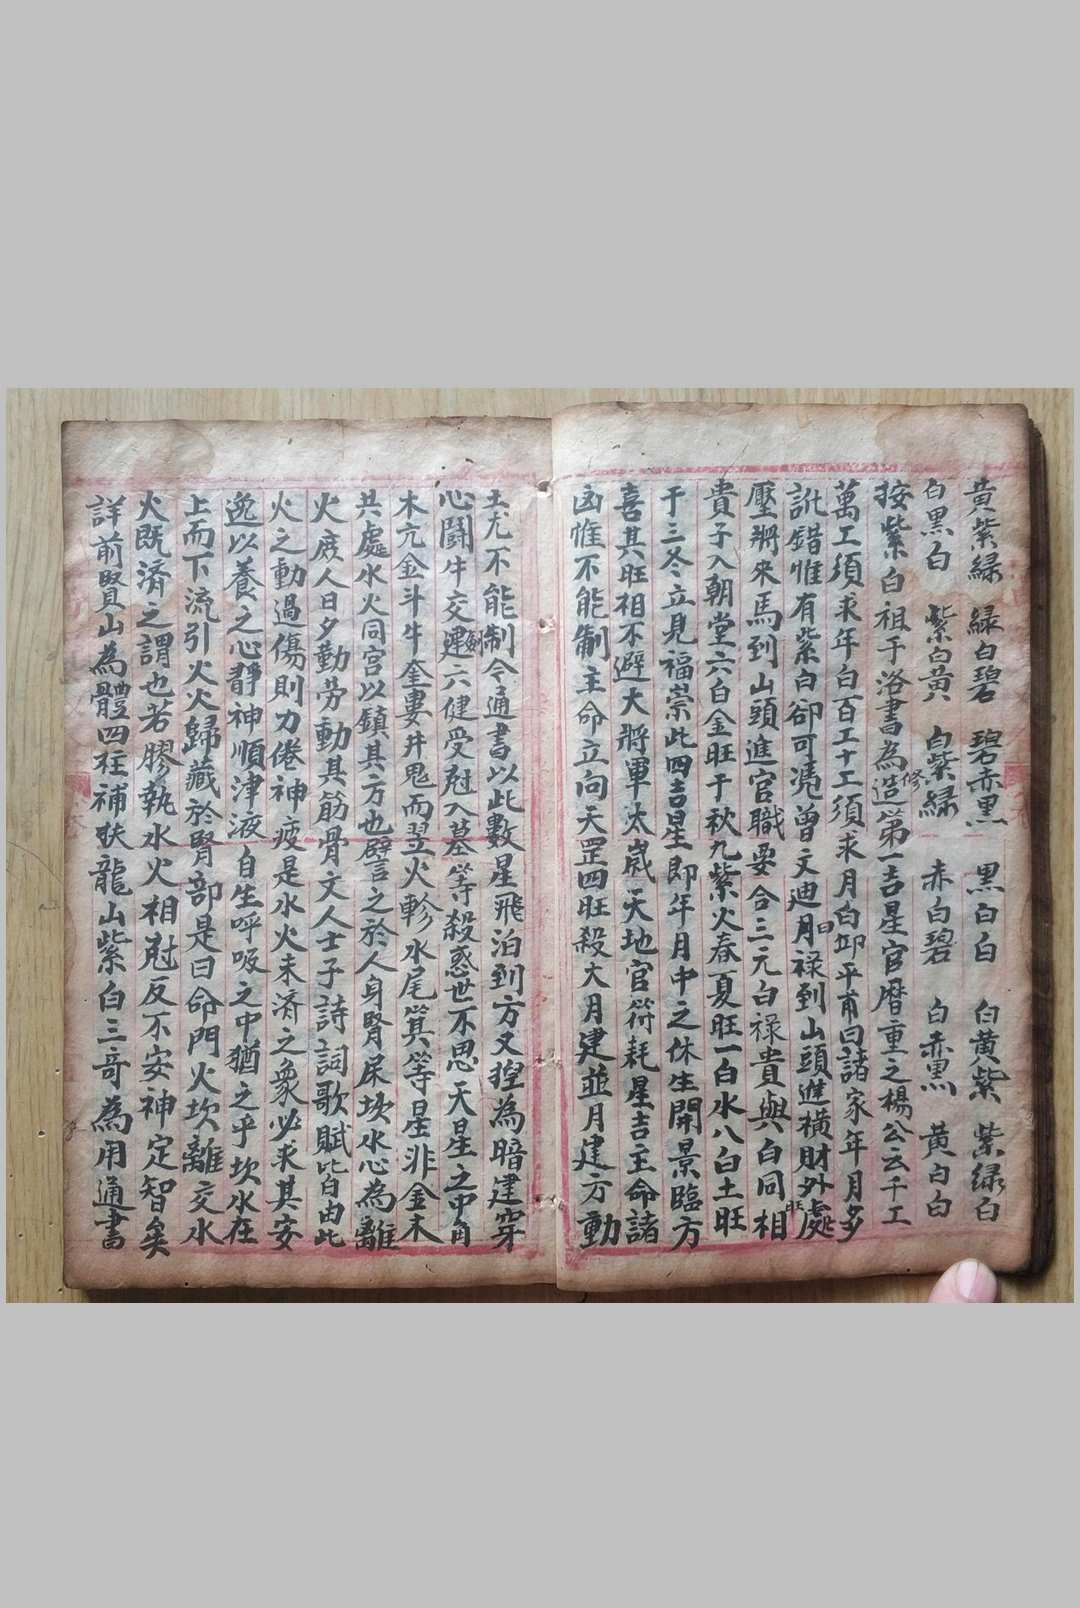 黃紫緑　緑白碧　碧赤黒　黒白白　白黄紫　紫緑白
白黒白　紫白黄　白紫緑　赤白碧　白赤黒　黄白白
按紫白祖于洛書為修造第一吉星官曆重之楊公云千工
萬工須求年白百工十工須求月白邱平甫曰諸家年月多
訛錯惟有紫白卻可憑曾文迪曰月禄到山頭進橫財外處旺
壓將來馬到山頭進官職要合三元白禄貴與白同相
貴子入朝堂六白金旺于秋九紫火春夏旺一白水八白土旺
于三冬立見福崇此四吉星即年月中之休生開景臨方
喜其旺相不避大將軍太歲天地官符耗星吉主命諸
凶惟不能制主命立向天罡四旺殺大月建並月建方動
土尤不能制今通書以此數星飛泊到方又捏為暗建穿
心鬪牛交劍遷六健受尅入墓等殺惑世不思天星之中角
木亢金斗牛奎婁井鬼而翌火軫水尾箕等星非金木
共處水火同宮以鎮其方也譬之於人身腎屎坎水心為離
火庶人日夕勤勞動其筋骨文人士子詩詞歌賦皆由此
火之動過傷則力倦神疲是水火未濟之象必求其安
逸以養之心靜神順津液自生呼吸之中猶之乎坎水在
上而下流引火火歸藏於腎部是曰命門火坎離交水
火既濟之謂也若膠執水火相尅反不安神定智矣
詳前賢山為體四柱補扶龍山紫白三竒為用通書